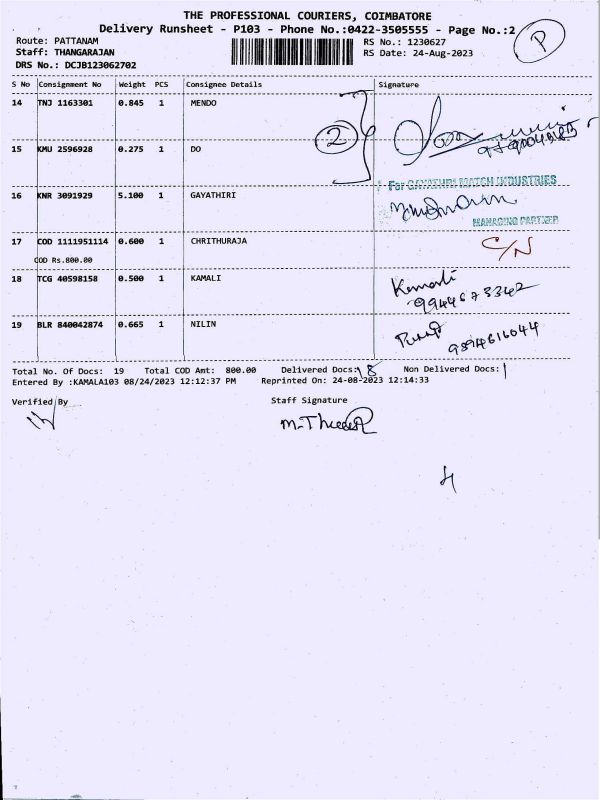 THE PROFESSIONAL COURIERS, COIMBATORE
Delivery Runsheet - P103 - Phone No.:0422-3505555 - Page No.:2
P
Route: PATTANAM
RS No.: 1230627
Staff: THANGARAJAN
RS Date: 24-Aug-2023
DRS No.: DCJB123062702
S No Consignment No Weight PCS Consignee Details Signature
14 TNJ 1163301 0.845 1 MENDO
2
15 KMU 2596928 0.275 1 DO
For GAYATHRI MATCH INDUSTRIES
16 KNR 3091929 5.100 1 GAYATHIRI
MANAGING PARTNER
17 COD 1111951114 0.600 1 CHRITHURAJA C/N
COD Rs.800.00
18 TCG 40598158 0.500 1 KAMALI Kamali
9944673342
19 BLR 840042874 0.665 1 NILIN
9894616044
Total No. Of Docs: 19 Total COD Amt: 800.00 Delivered Docs: 18 Non Delivered Docs: 1
Entered By :KAMALA103 08/24/2023 12:12:37 PM Reprinted On: 24-08-2023 12:14:33
Verified By Staff Signature